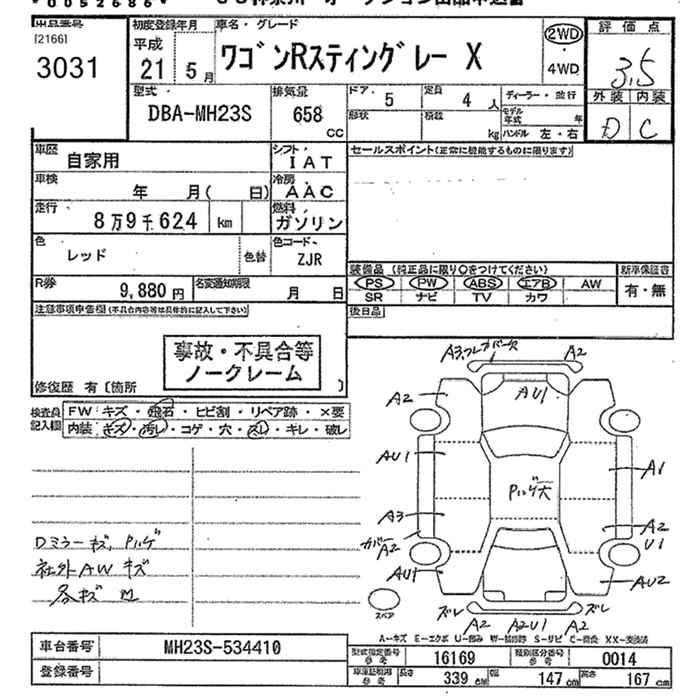 0052686
出品番号 [2166] 3031
初度登録年月 平成 21年 5月
車名・グレード ワゴンRスティングレー X
2WD・4WD
評価点 3.5
外装 D 内装 C
型式 DBA-MH23S
排気量 658 CC
ドア・ 5 定員 4 人
形状 積載 kg
ディーラー・並行
モデル年式 年
ハンドル 左・右
車歴 自家用
シフト IAT
車検 年 月( 日)
冷房 AAC
走行 8万9千624 km
燃料 ガソリン
色 レッド 色替
色コード ZJR
R券 9,880円
名変通知期限 月 日
セールスポイント(正常に機能するものに限ります)
装備品 (純正品に限り○をつけてください) 新車保証書
PS PW ABS エアB AW 有・無
SR ナビ TV カワ
後日品
注意事項申告欄(不具合内容等は具体的に記入して下さい)
事故・不具合等
ノークレーム
修復歴 有〔箇所 〕
検査員記入欄
FW キズ・飛石・ヒビ割・リペア跡・×要
内装 キズ・汚レ・コゲ・穴・スレ・キレ・破レ
Dミラーキズ、Pハゲ
社外AWキズ
各キズ
A2
A2
AU1
AU1
Pハゲ大
A1
A3
A2
カバーA2
U1
AU1
AU2
スペア
ズレ ズレ
A2 A2U1 A2
A-キズ E-エクボ U-凹み W-補修跡 S-サビ C-腐食 XX-交換済
車台番号 MH23S-534410
登録番号
型式指定番号 参考 16169
類別区分番号 参考 0014
車庫証明用 参考 長さ 339 cm 幅 147 cm 高さ 167 cm